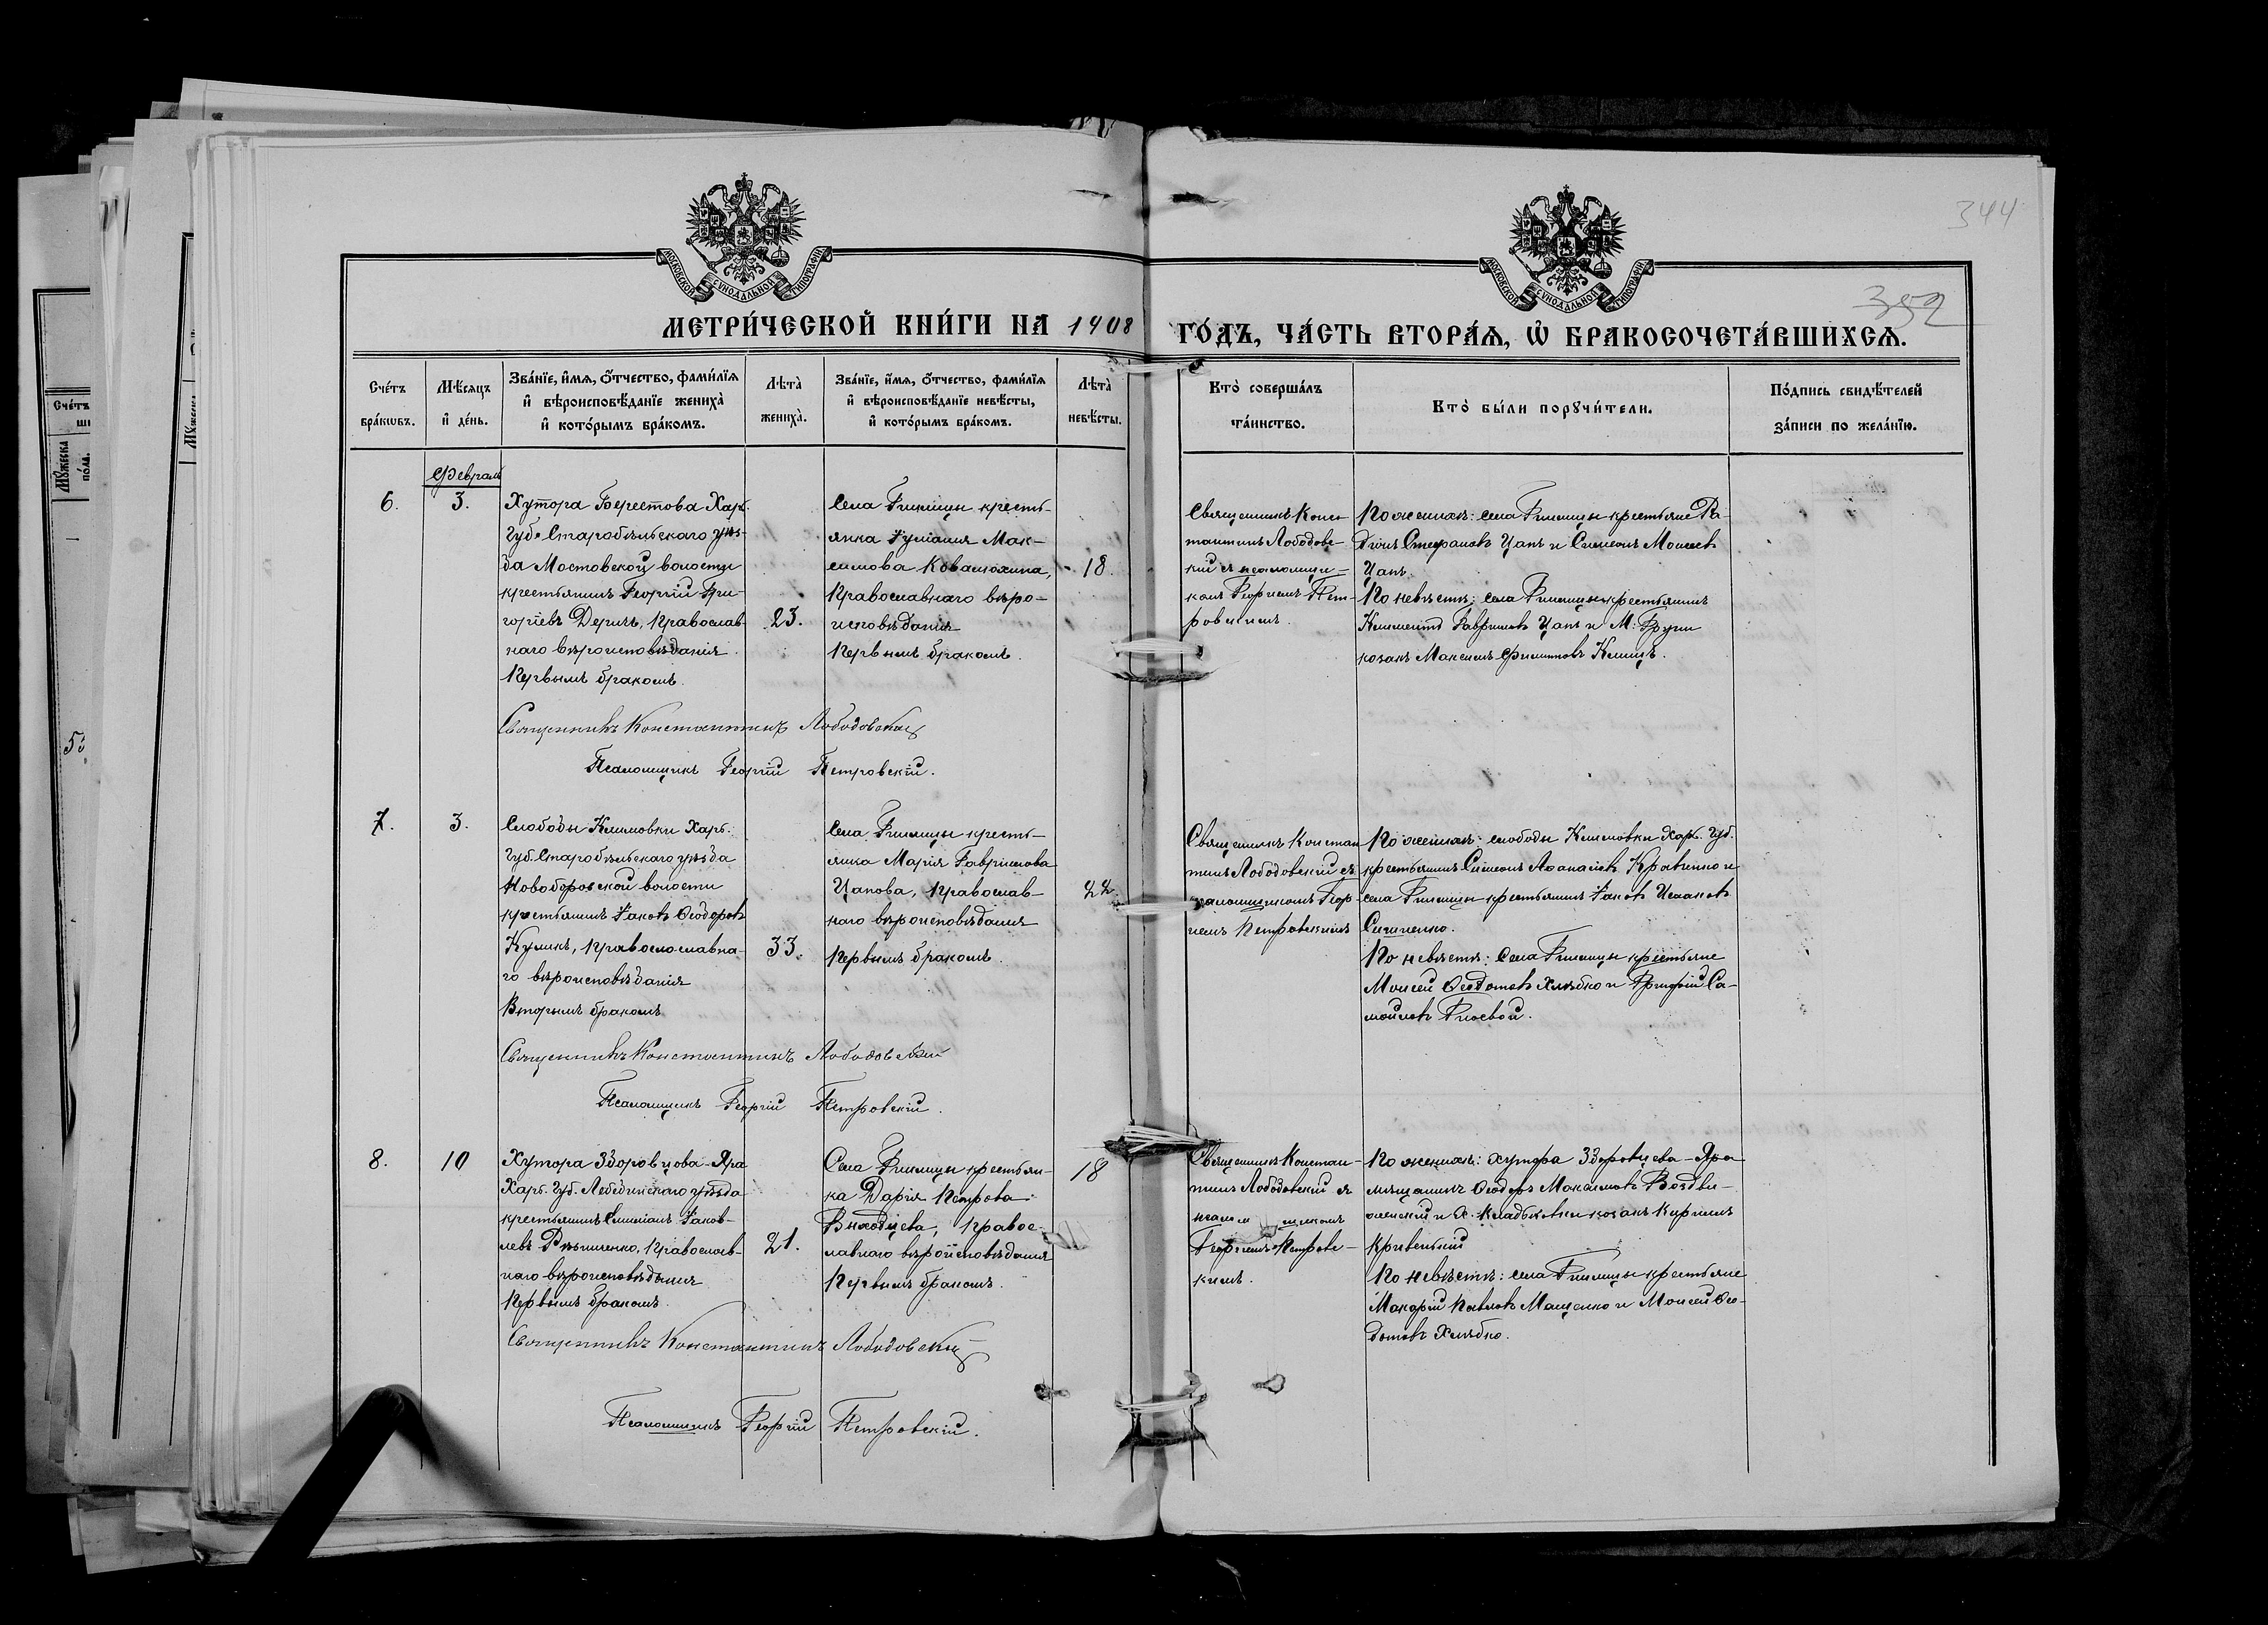 344
352
МОСКОВСКОЙ СѴНОДАЛЬНОЙ ТИПОГРАФІИ
МОСКОВСКОЙ СѴНОДАЛЬНОЙ ТИПОГРАФІИ
МЕТРИ́ЧЕСКОЙ КНИ́ГИ НА 1908 ГО́ДЪ, ЧА́СТЬ ВТОРА́Я, Ѡ БРАКОСОЧЕТА́ВШИХСЯ.
Сче́тъ бра́кѡвъ.
Мѣ́сяцъ и де́нь.
Зва́нїе, и́мя, ѻ́тчество, фами́лїя
и вѣроисповѣ́данїе жениха̀
и кото́рымъ бра́комъ.
Лѣта̀ жениха̀.
Зва́нїе, и́мя, ѻ́тчество, фами́лїя
и вѣроисповѣ́данїе невѣ́сты,
и кото́рымъ бра́комъ.
Лѣта̀ невѣ́сты.
Кто̀ соверша́лъ
та́инство.
Кто̀ бы́ли порꙋчи́тели.
По́дпись свидѣ́телей
за́писи по жела́нїю.
Февраль
6.
3.
Хутора Берестова Харь.
Губ. Старобѣльскаго уѣз-
да Мостовской волости
крестьянинъ Георгій Гри-
горіевъ Дергач, православ-
наго вѣроисповѣданія
Первымъ бракомъ.
23.
Села крестья-
янка Іуліанія Мак-
симова Ковалюхина,
Православнаго вѣро-
исповѣданія
Первымъ бракомъ.
18.
Священникъ Конс-
тантинъ Лободовс-
кій съ псаломщи-
комъ Георгіемъ Пет-
ровскимъ.
По женихѣ: села крестьяне Ра-
діонъ Стефановъ Цапъ и Симеонъ Моисеевъ
Цапъ.
По невѣстѣ: села крестьянинъ
Климентъ Гавриловъ Цапъ и М.
козакъ Максимъ Филипповъ
Священникъ Константинъ Лободовскій
Псаломщикъ Георгій Петровскій.
7.
3.
Слободы Климовки Харь.
Губ. Старобѣльскаго уѣзда
Новоборовской волости
крестьянинъ Іаковъ Ѳеодоровъ
Куликъ, православна-
го вѣроисповѣданія
Вторымъ бракомъ
33.
Села крестья-
янка Марія Гаврилова
Цапова, Православ-
наго вѣроисповѣданія
Первымъ бракомъ.
22.
Священникъ Констан
тинъ Лободовскій съ
псаломщикомъ Геор-
гіемъ Петровскимъ
По женихѣ: слободы Климовки Харь. Губ.
крестьянинъ Симеонъ Аѳанасіевъ Кравченко и
села крестьянинъ Іаковъ Исааковъ
По невѣстѣ: Села крестьяне
Моисей Ѳеодотовъ Хлѣбко и Григорій Са-
мойловъ
Священникъ Константинъ Лободовскій
Псаломщикъ Георгій Петровскій.
8.
10
Хутора Здоровцова-Яра
Харь. Губ. Лебединскаго уѣзда
крестьянинъ Іаков-
левъ православ-
наго вѣроисповѣданія
Первымъ бракомъ.
21.
Села крестьян-
ка Дарія Петрова
Выходцева, Правос-
лавнаго вѣроисповѣданія
Первымъ бракомъ.
18
Священникъ Констан-
тинъ Лободовскій съ
псаломщикомъ
Георгіемъ Петровс-
кимъ.
По женихѣ: хутора Здоровцева-Яра
мѣщанинъ Ѳеодоръ Максимовъ Воздви-
женскій и козакъ Кириллъ
По невѣстѣ: села крестьяне
Макарій Павловъ Мащенко и Моисей Ѳео-
дотовъ Хлѣбко.
Священникъ Константинъ Лободовскій
Псаломщикъ Георгій Петровскій.